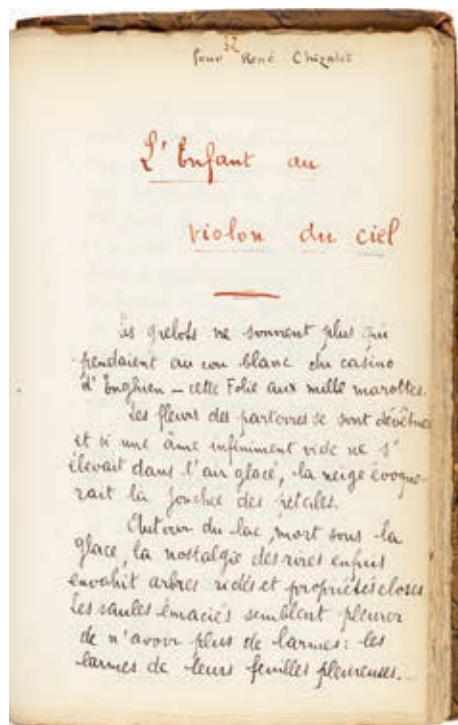 32
Pour René Chizalet
L'Enfant au
violon du ciel
Les grelots ne sonnent plus qui
pendaient au cou blanc du casino
d'Enghien — cette Folie aux mille marottes.
Les fleurs des parterres se sont dévêtues
et si une âme infiniment vide ne s'
élevait dans l'air glacé, la neige évoque-
rait la jonchée des pétales.
Autour du lac, mort sous la
glace, la nostalgie des rires enfuis
envahit arbres ridés et propriétés closes.
Les saules émaciés semblent pleurer
de n'avoir plus de larmes : les
larmes de leurs feuilles pleureuses.